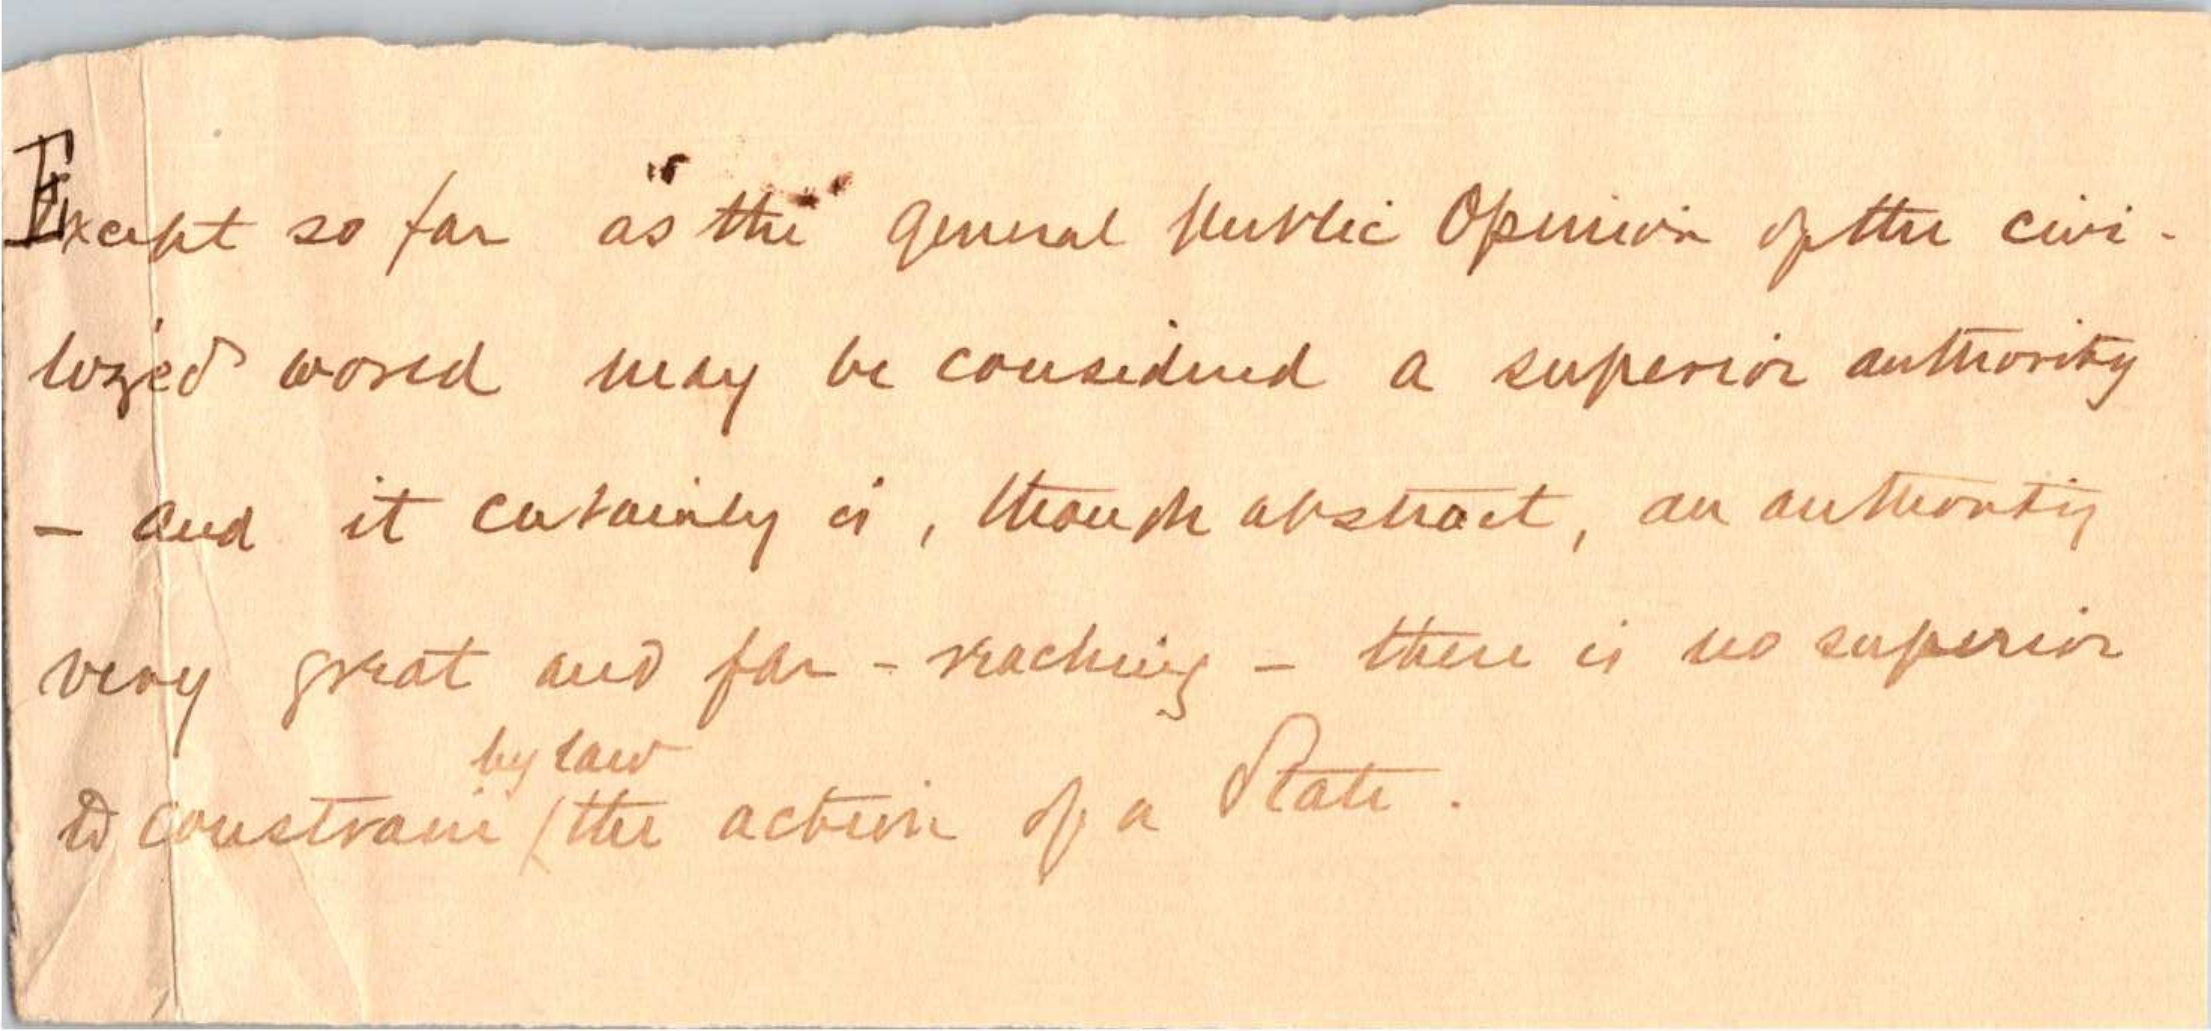 Except so far as the general Public Opinion of the civi-
lized world may be considered a superior authority
- and it certainly is, though abstract, an authority
very great and far-reaching - there is no superior
by law
to constrain / the action of a State.